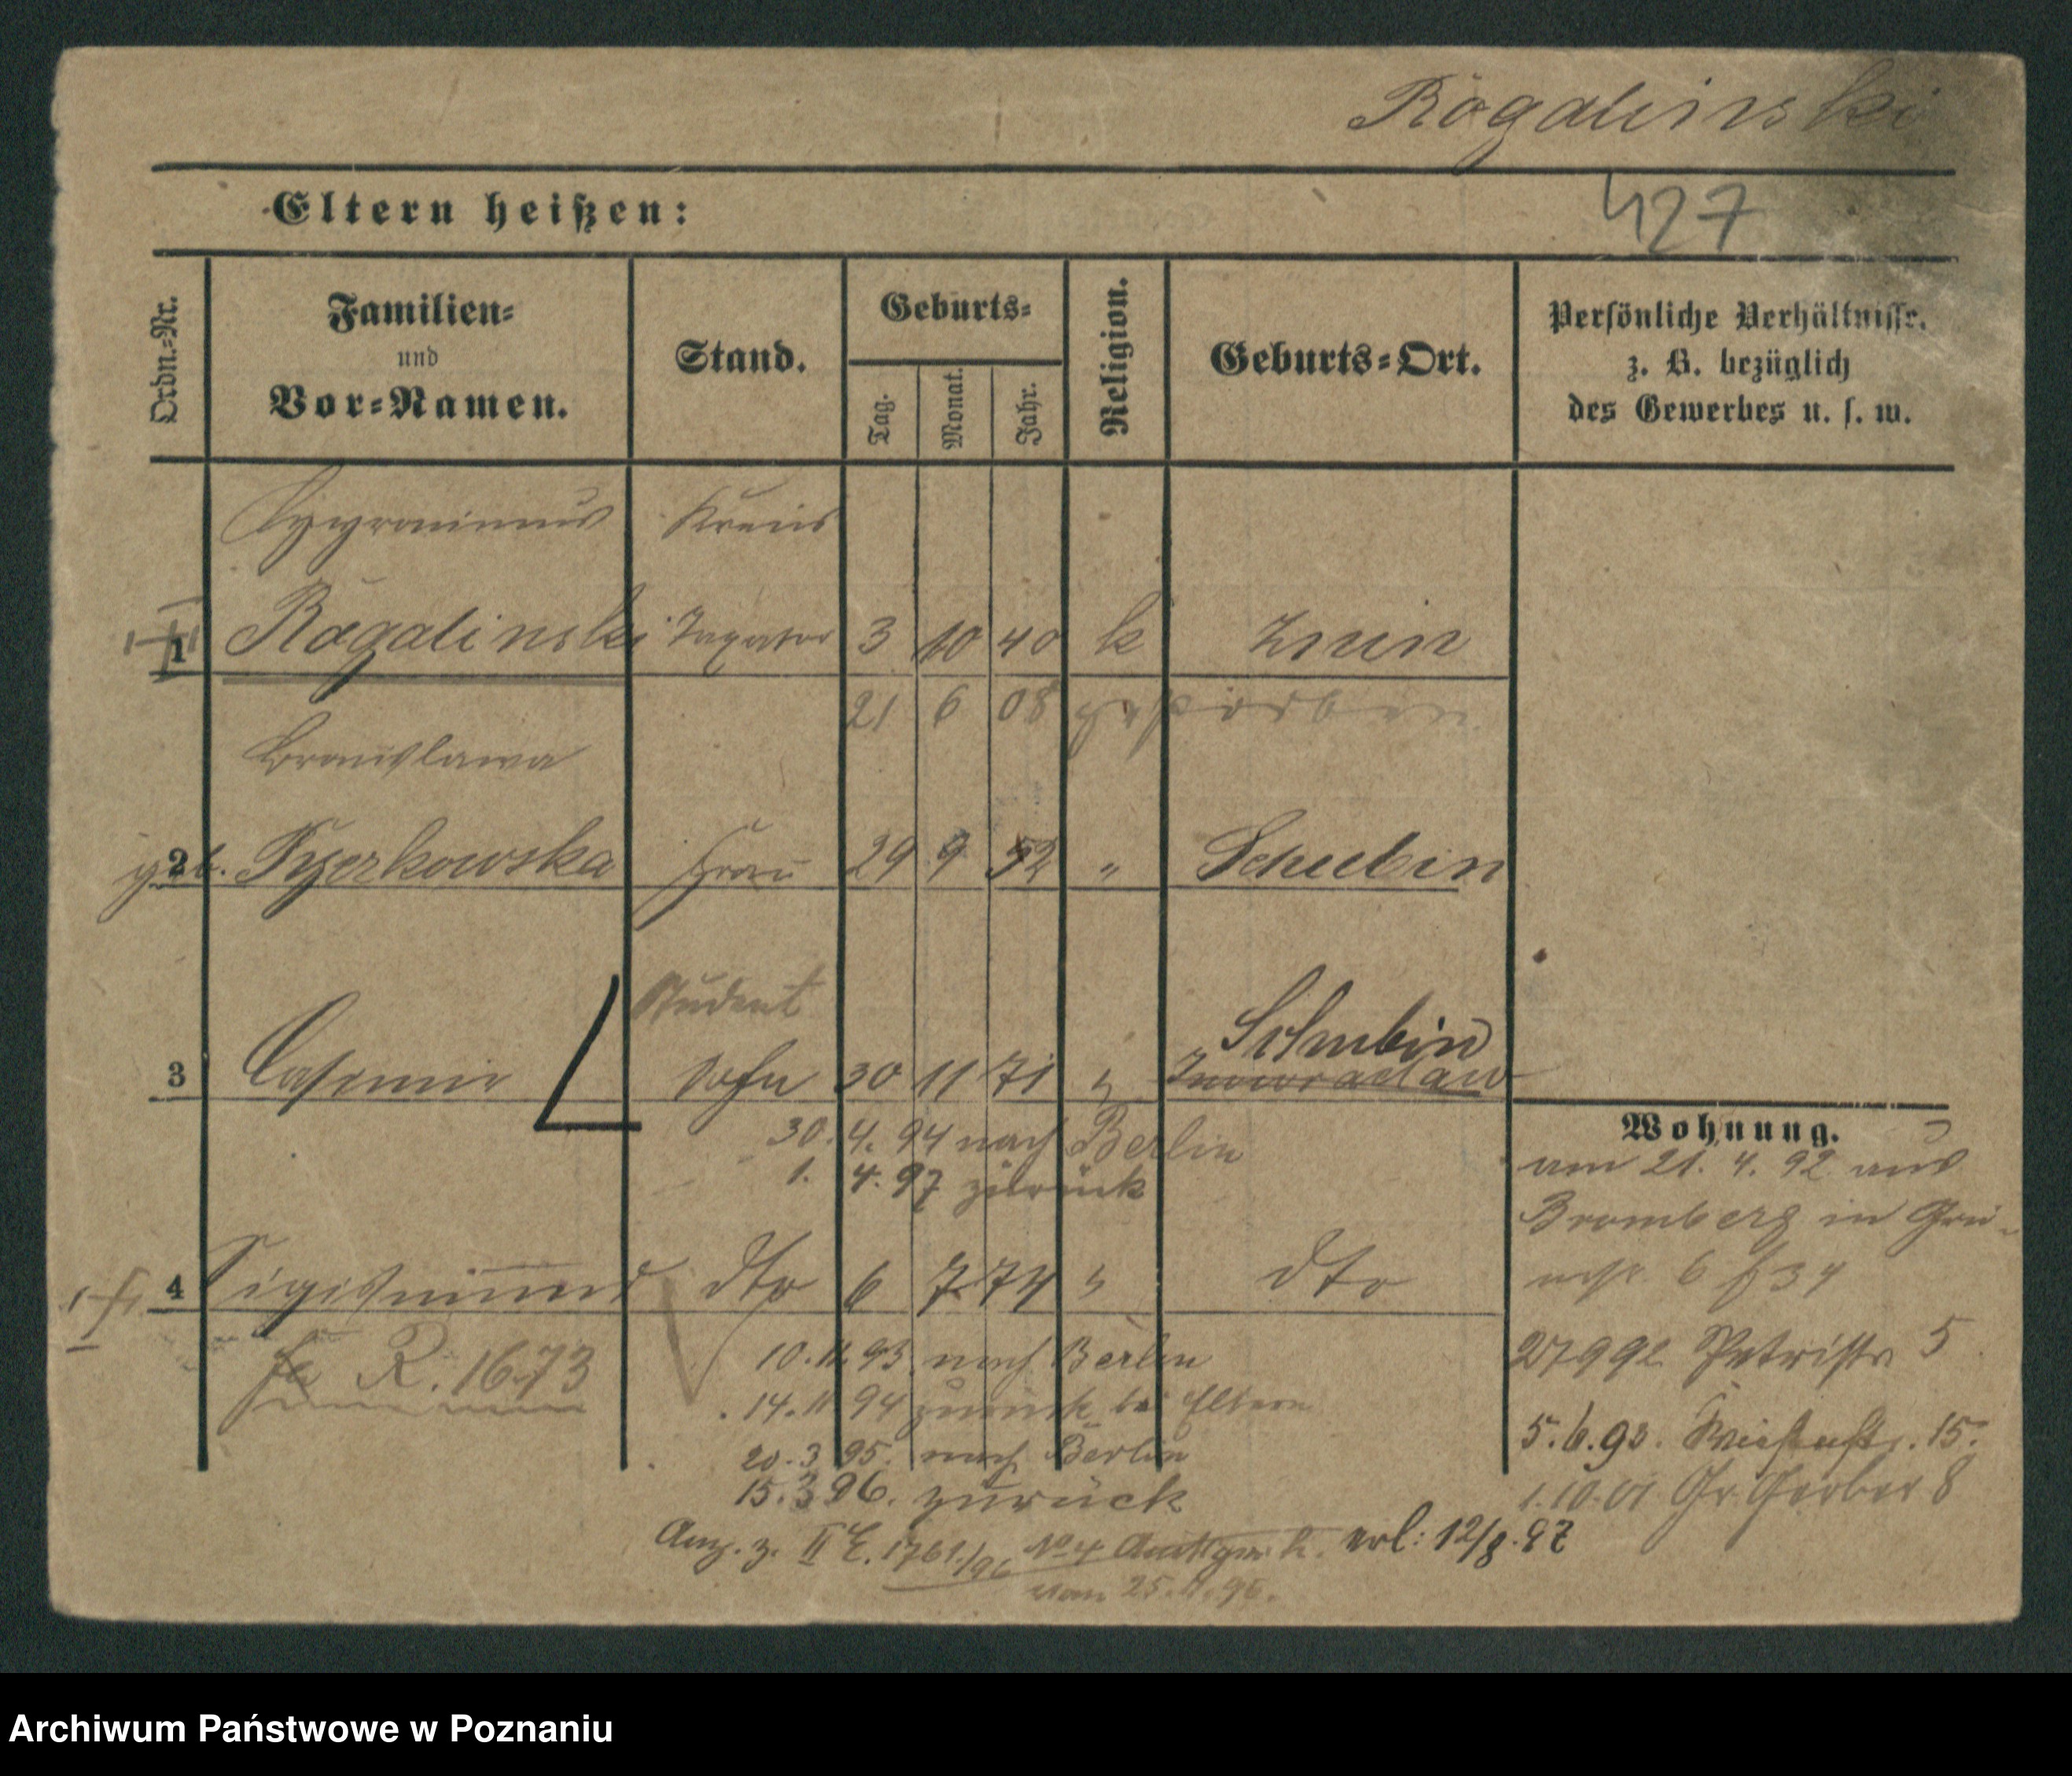 Rogalinski
427
Eltern heißen:
Ordn.-Nr.
Familien-
und
Vor-Namen.
Stand.
Geburts-
Tag.
Monat.
Jahr.
Religion.
Geburts-Ort.
Persönliche Verhältnisse.
z. B. bezüglich
des Gewerbes u. s. w.
Kreis
1 Rogalinski Taxator 3 10 40 k Znin
21 6 08 gestorben
Bronislawa
geb. 2 Frau 29 9 52 " Schubin
Student
Schubin
3 Casimir Sohn 30 11 71 " Inowraclaw
30. 4. 94 nach Berlin
1. 4. 97 zürück
Wohnung.
am 21. 4. 92 aus
Bromberg in
4 Sigismund dto 6 7 74 " dto
R. 1673
10. 11. 93 nach Berlin
14. 11 94 zurück bei Eltern
20. 3. 95. nach Berlin
15. 3 96. zurück
27992 Petristr 5
5. 6. 93. 15.
1. 10. 01 Gr. Gerber 8
Anz. z. II E. 1761/96 No 4 erl: 12/8. 97
vom
Archiwum Państwowe w Poznaniu